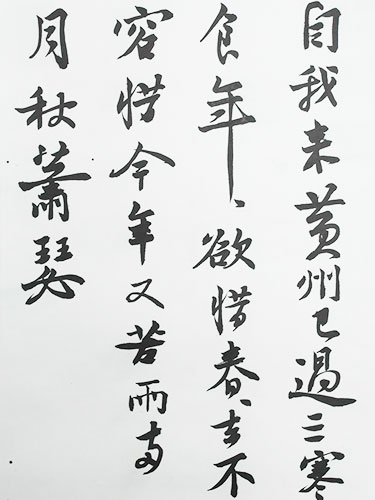 自我来黄州已過三寒
食年、欲惜春、去不
容惜今年又苦雨兩
月秋蕭瑟